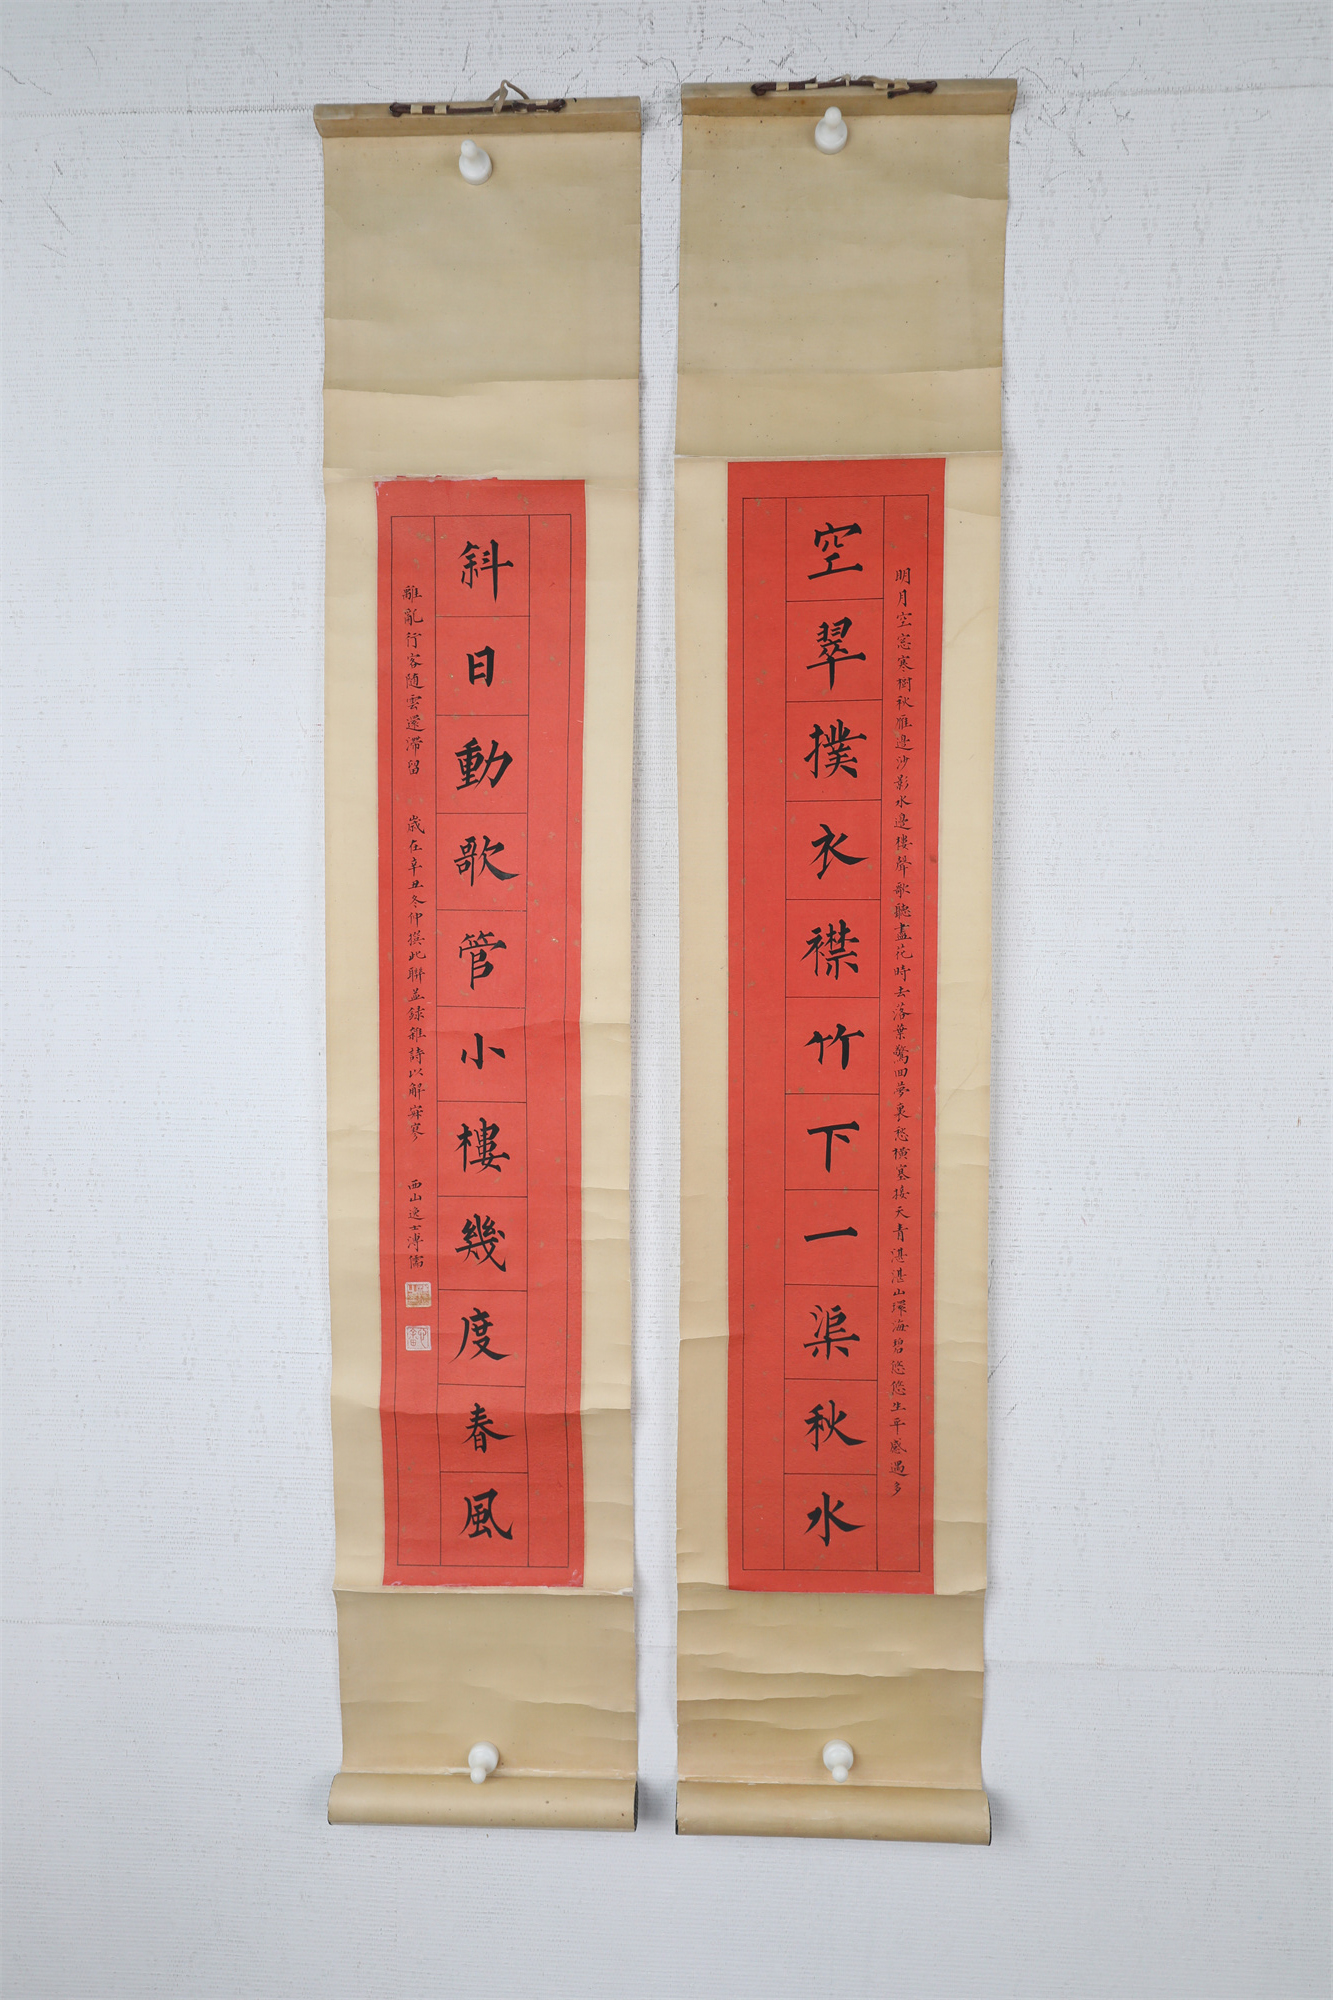 空翠撲衣襟竹下一渠秋水
明月空窓寒樹秋雁邊沙影水邊樓聲歌聽盡花時去落葉驚回夢裏愁橫塞接天青湛湛山環海碧悠悠生平感遇多
斜日動歌管小樓幾度春風
離亂行客隨雲還滯留
歲在辛丑冬仲撰此聯並錄雜詩以解寒
西山逸士溥儒